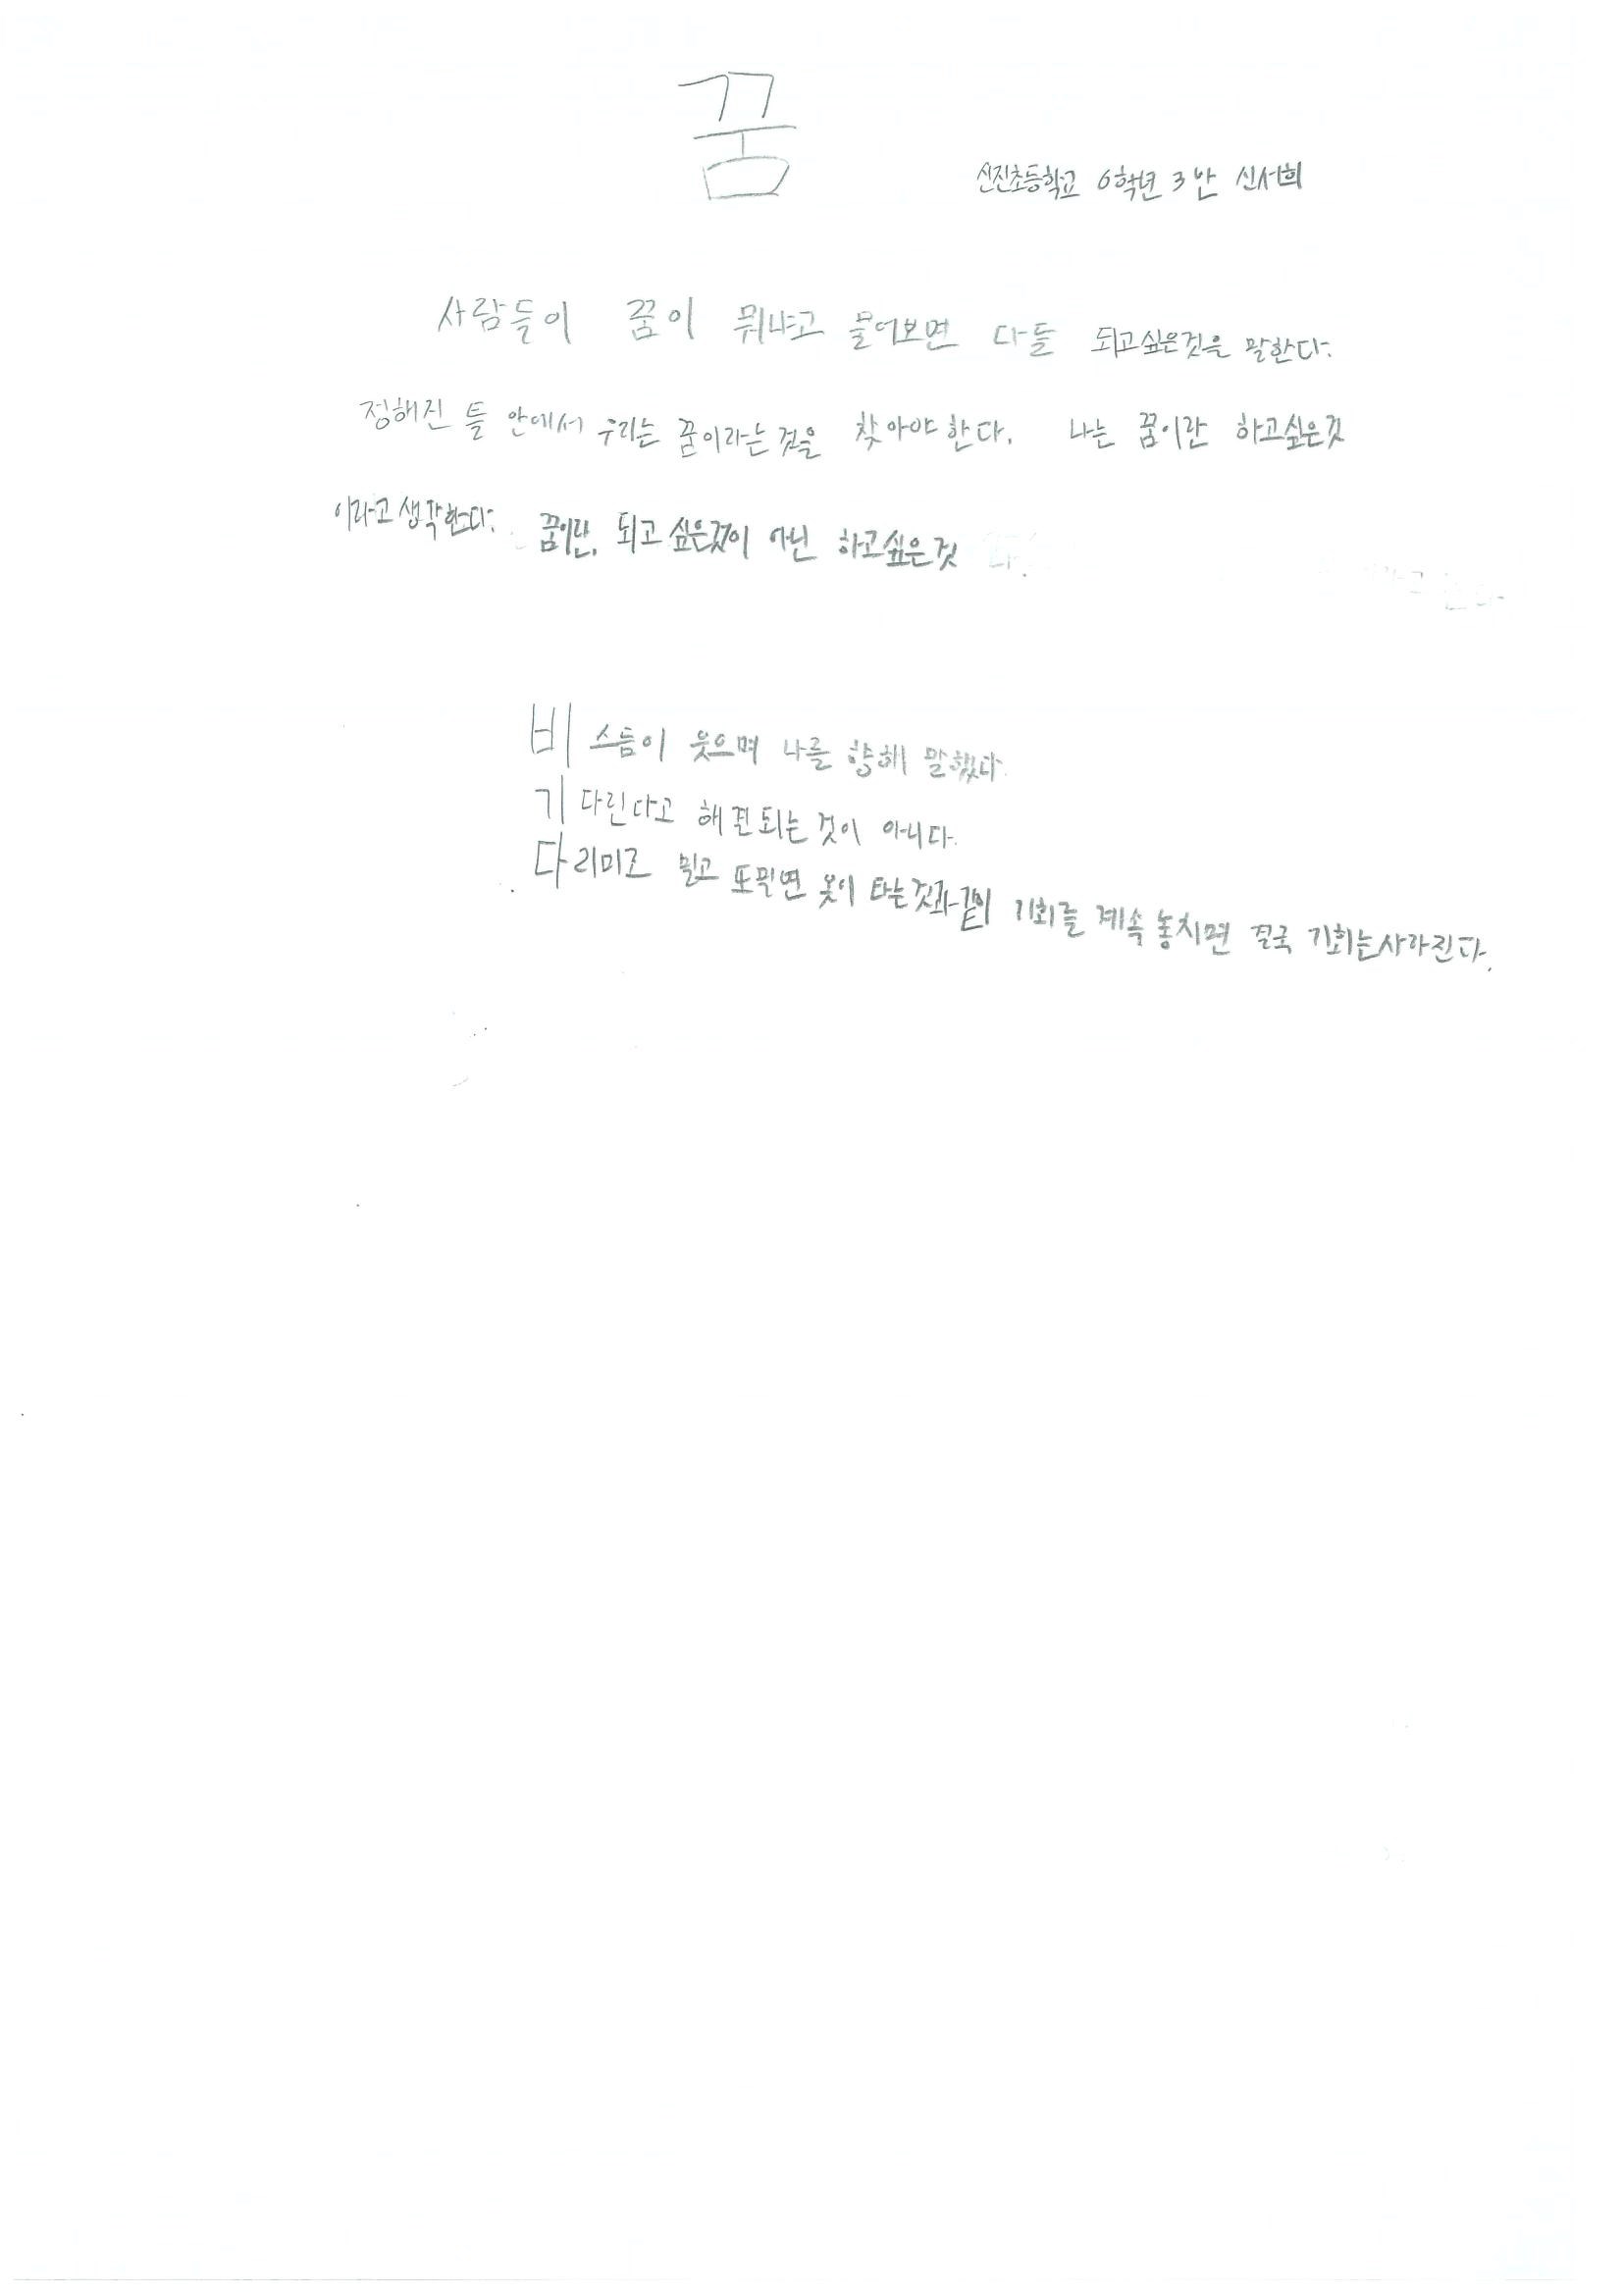 꿈
신진초등학교 6학년 3반 신서희
사람들이 꿈이 뭐냐고 물어보면 다들 되고싶은것을 말한다.
정해진 틀 안에서 우리는 꿈이라는 것을 찾아야 한다. 나는 꿈이란 하고싶은것
이라고 생각한다. 꿈이란, 되고 싶은것이 아닌 하고싶은 것
비스듬이 웃으며 나를 향해 말했다
기다린다고 해결되는 것이 아니다.
다리미로 밀고 또밀면 옷이 타는것과같이 기회를 계속 놓치면 결국 기회는사라진다.